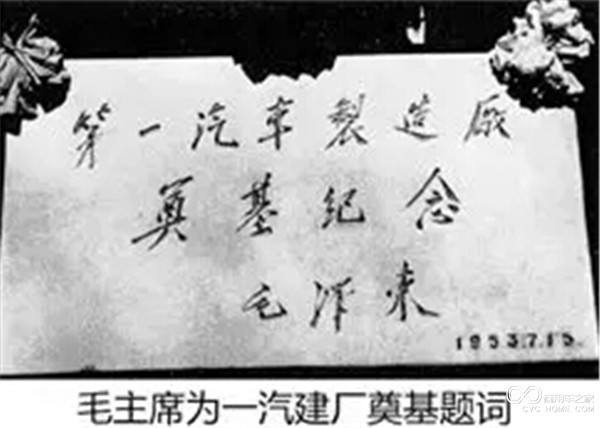 第一汽车製造厰
奠基纪念
毛泽东
1953.7.15.
毛主席为一汽建厂奠基题词
商用车之家
CVC HOME·COM